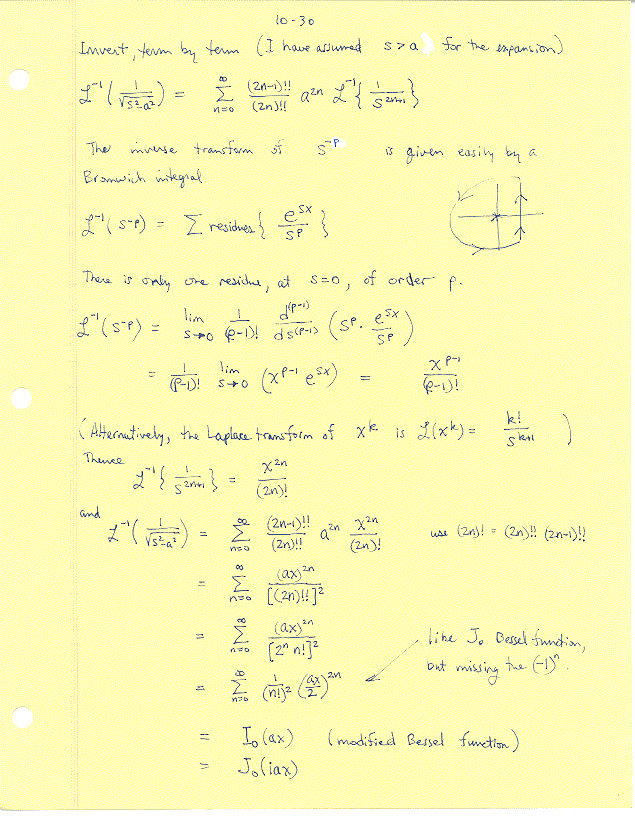 10-30
Invert, term by term (I have assumed s > a for the expansion)
ℒ⁻¹( 1/√(s²-a²) ) = Σ_{n=0}^{∞} (2n-1)!!/(2n)!! a^{2n} ℒ⁻¹{ 1/s^{2n+1} }
The inverse transform of s^{-p} is given easily by a
Bromwich integral
ℒ⁻¹(s^{-p}) = Σ residues { e^{sx}/s^p }
There is only one residue, at s=0, of order p.
ℒ⁻¹(s^{-p}) = lim_{s→0} 1/(p-1)! d^{(p-1)}/ds^{(p-1)} ( s^p · e^{sx}/s^p )
= 1/(p-1)! lim_{s→0} ( x^{p-1} e^{sx} ) = x^{p-1}/(p-1)!
( Alternatively, the Laplace transform of x^k is ℒ(x^k) = k!/s^{k+1} )
Thence
ℒ⁻¹{ 1/s^{2n+1} } = x^{2n}/(2n)!
and
ℒ⁻¹( 1/√(s²-a²) ) = Σ_{n=0}^{∞} (2n-1)!!/(2n)!! a^{2n} x^{2n}/(2n)! use (2n)! = (2n)!! (2n-1)!!
= Σ_{n=0}^{∞} (ax)^{2n}/[(2n)!!]²
= Σ_{n=0}^{∞} (ax)^{2n}/[2^n n!]²
like J₀ Bessel function,
but missing the (-1)^n.
= Σ_{n=0}^{∞} 1/(n!)² (ax/2)^{2n}
= I₀(ax) (modified Bessel function)
= J₀(iax)